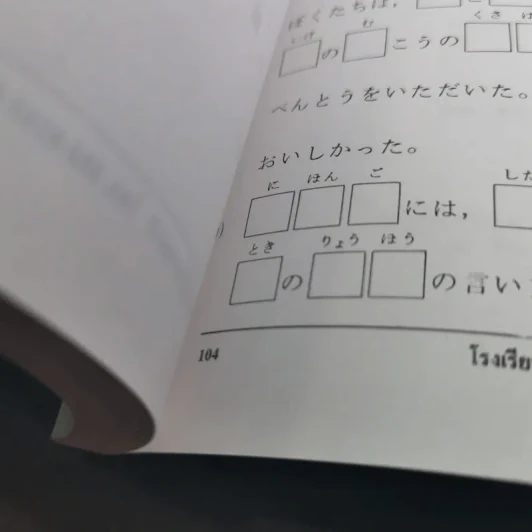 ぼくたちは、
くさ
の こうの
べんとうをいただいた。
おいしかった。
に ほん ご
には,
とき りょう ほう
の の言い
104 โรงเรีย